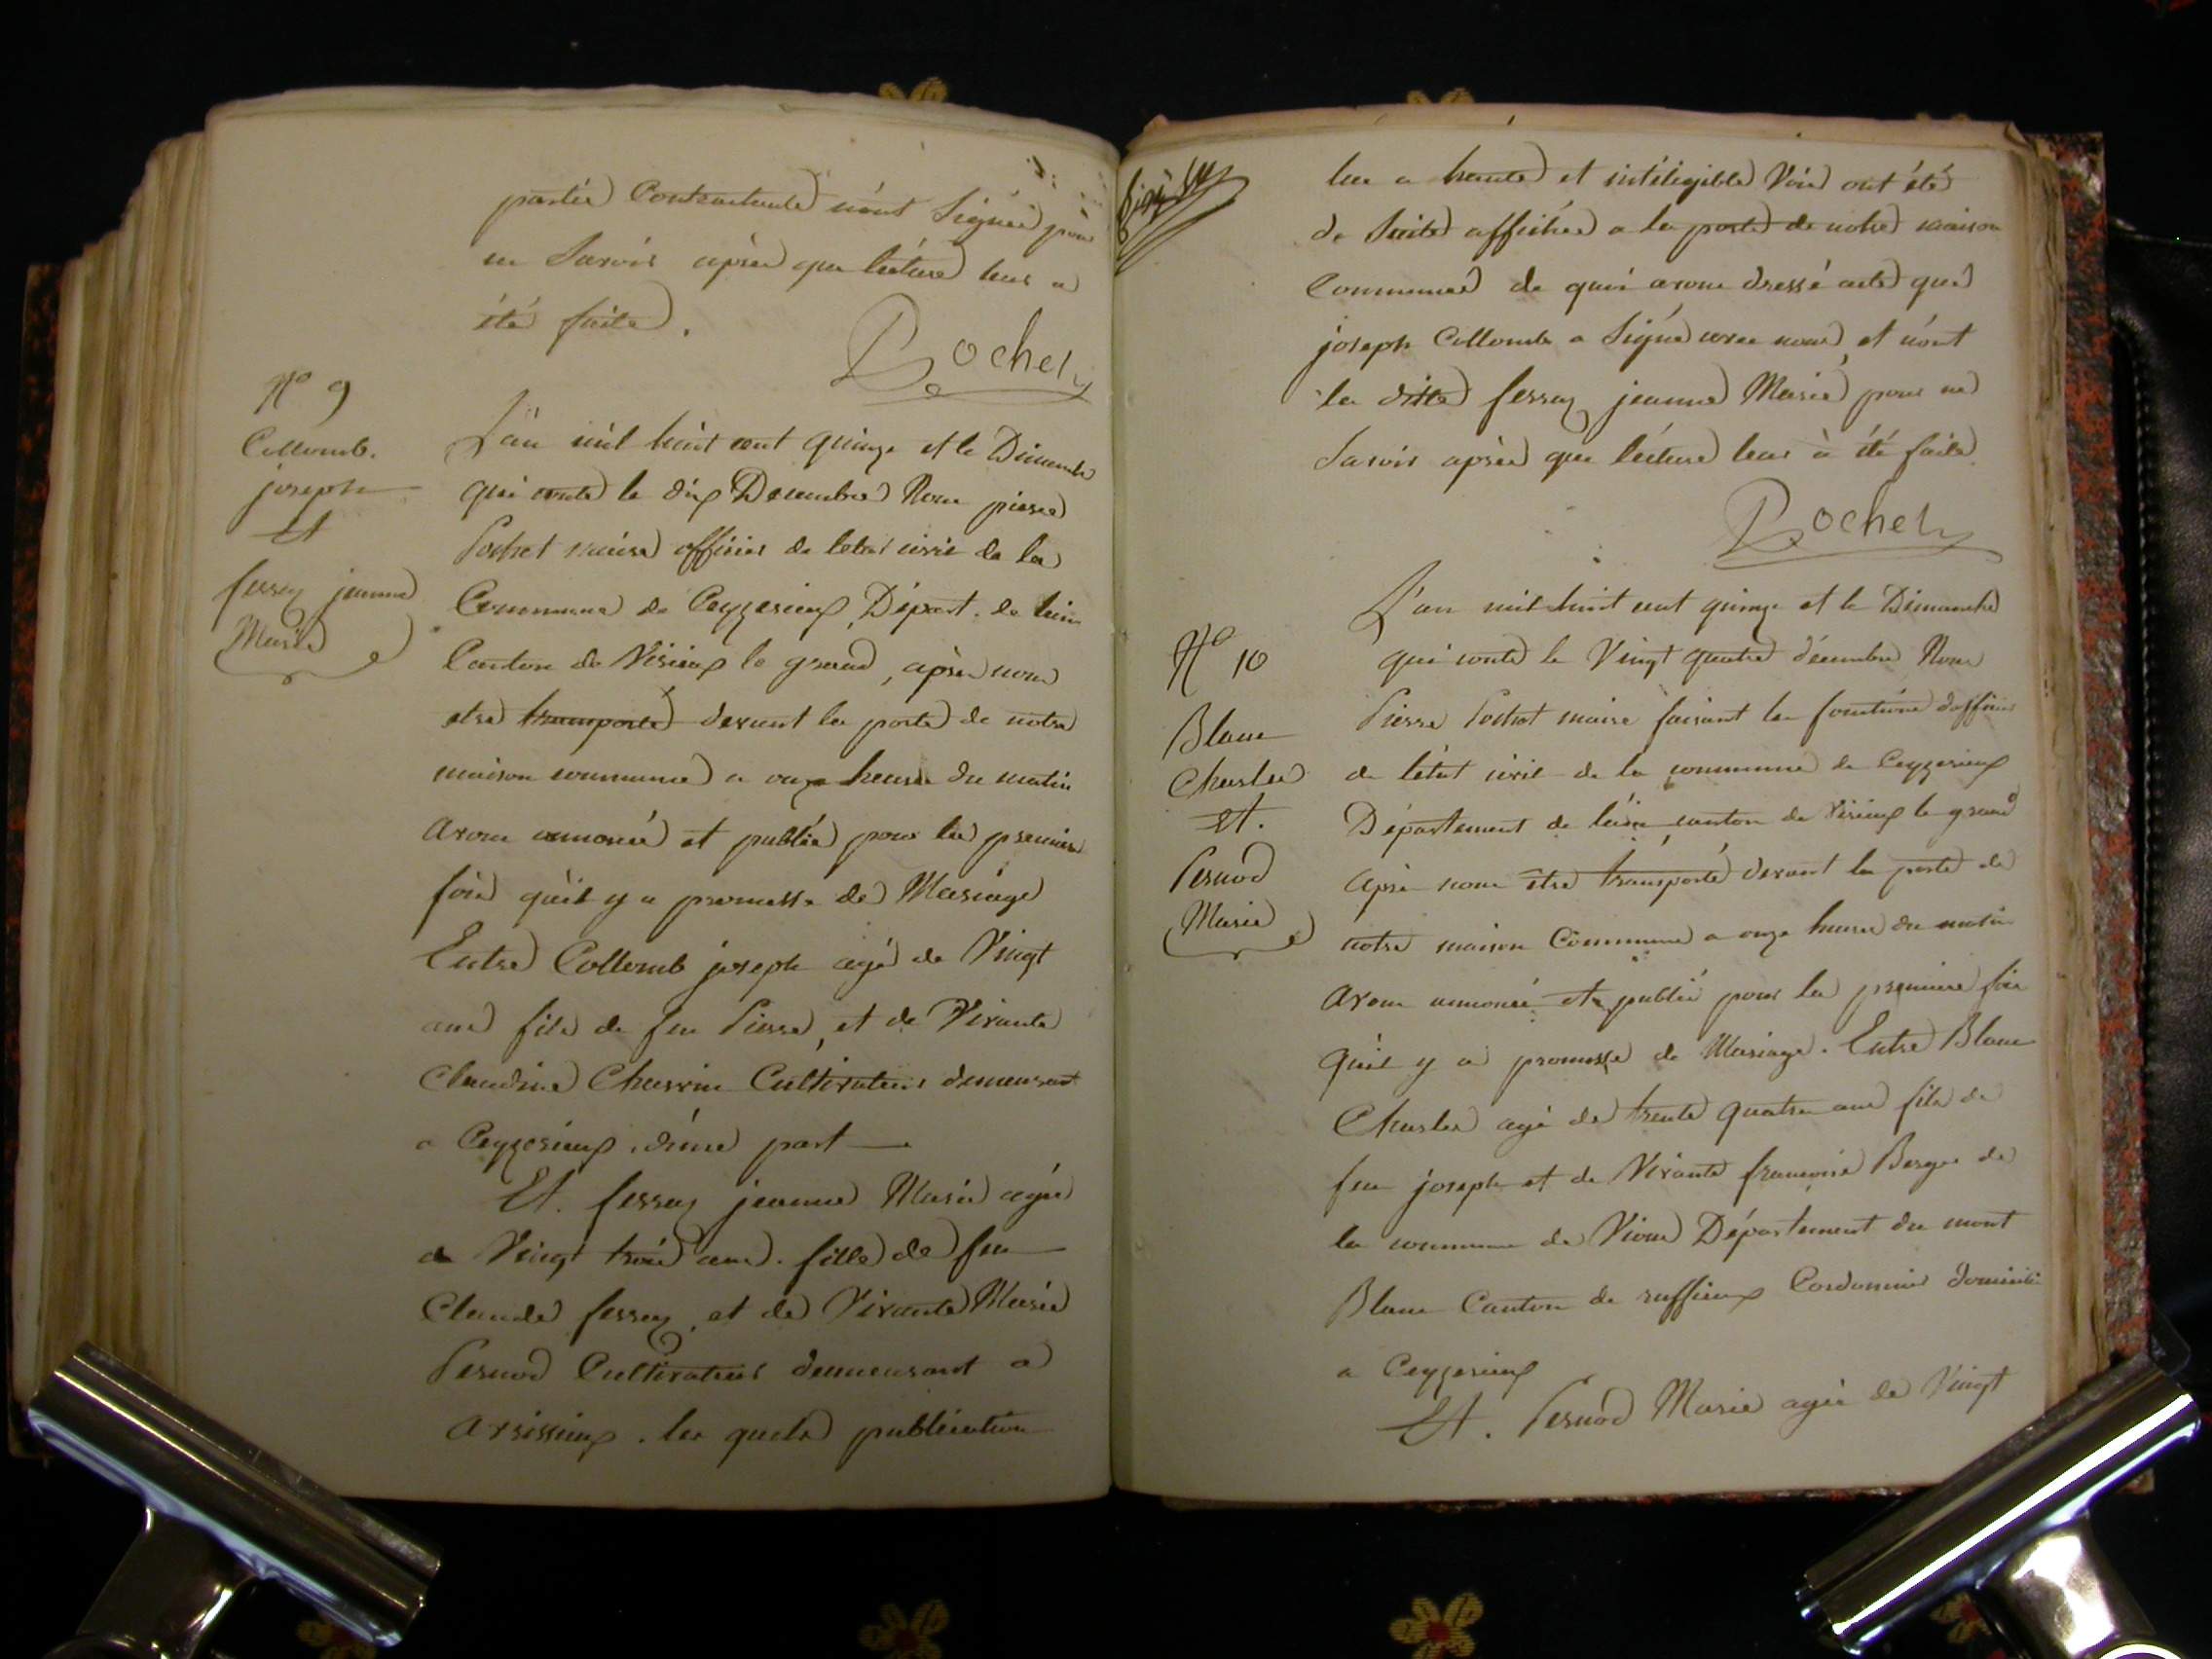 partie Contractante n'ont Signée pour
ne Savoir après que lecture leur a
été faite.
Pochet
N° 9
Collomb.
joseph
Et
ferrey jeanne
Marie
L'an mil huit cent quinze et le Dimanche
qui conte le dix Decembre Nous pierre
Pochet maire officier de letat civil de la
Commune de Ceyzerieux, Départ. de lain
Canton de Virieux le grand, après nous
etre transporté devant la porte de notre
maison commune a onze heure du matin
avons annoncé et publiée pour la premiere
fois qu'il y a promesse de Mariage
Entre Collomb joseph agé de Vingt
ans fils de feu Pierre, et de Vivante
Claudine Charvin Cultivateur demeurant
a Ceyzerieux. d'une part
Et. ferrey jeanne Marie agée
de Vingt trois ans. fille de feu
Claude ferrey, et de Vivante Marie
Pernod Cultivateur demeurant a
arvissieux. les quels publication
lue a haute et intéligible Voix ont été
de Suite affichée a la porte de notre maison
Commune de quoi avons dressé acte que
joseph Collomb a Signé avec nous, et n'ont
la ditte ferrey jeanne Marie pour ne
Savoir après que lécture leur à été faite
Pochet
N° 10
Blanc
Charles
Et.
Pernod
Marie
L'an mil huit cent quinze et le Dimanche
qui conte le Vingt quatre décembre Nous
Pierre Pochet maire faisant les fonctions d'officier
de l'état civil de la commune de Ceyzerieux
Département de l'ain canton de Virieux le grand
après nous être transporté devant la porte de
notre maison Commune a onze heures du matin
avons annoncé et publié pour la premiere fois
qu'il y a promesse de Mariage. Entre Blanc
Charles agé de trente quatre ans fils de
feu joseph et de Vivante francoise Berger de
la commune de Vions Département du mont
Blanc Canton de ruffieux Cordonnier domicilié
a Ceyzerieux
Et. Pernod Marie agée de Vingt